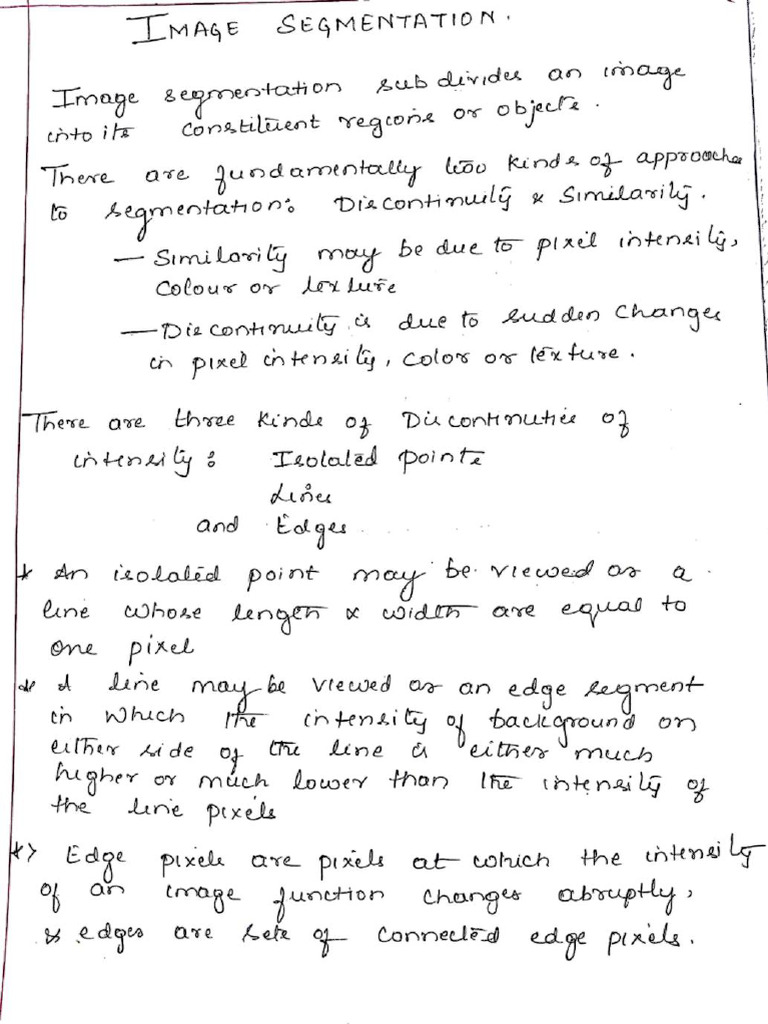 IMAGE SEGMENTATION.
Image segmentation subdivides an image
into its constituent regions or objects.
There are fundamentally two kinds of approaches
to segmentation: Discontinuity & Similarity.
— Similarity may be due to pixel intensity,
Colour or texture
— Discontinuity is due to sudden changes
in pixel intensity, color or texture.
There are three kinds of Discontinuties of
intensity: Isolated points
Lines
and Edges.
* An isolated point may be viewed as a
line whose length & width are equal to
one pixel
* A line may be viewed as an edge segment
in which the intensity of background on
either side of the line is either much
higher or much lower than the intensity of
the line pixels
*> Edge pixels are pixels at which the intensity
of an image function changes abruptly,
& edges are sets of connected edge pixels.